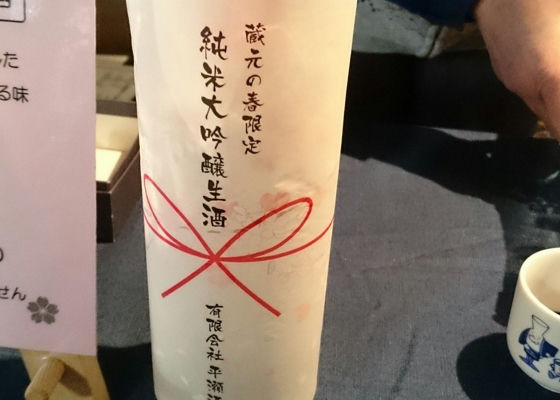 蔵元の春限定
純米大吟醸生酒
有限会社 平瀬酒
した
る味
せん